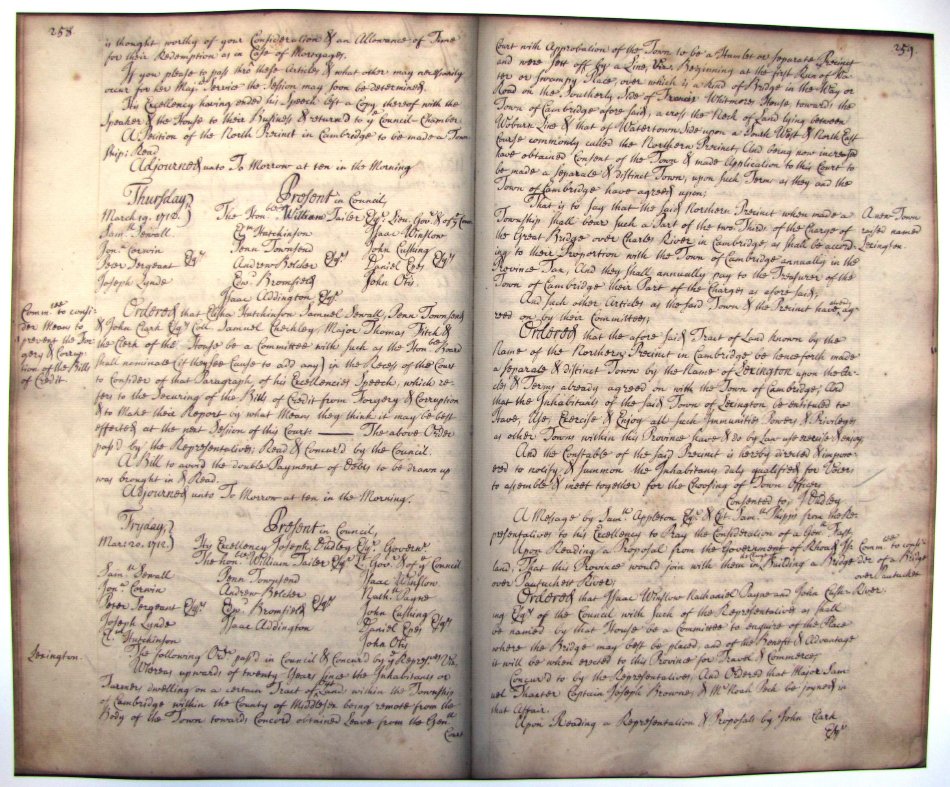 258
is thought worthy of your Consideration & an Allowance of Time
for their Redemption as in Case of Morgages.
If you please to pass thro these Articles & what other may necessarily
occur for her Majtys Service the Session may soon be determined.
His Excellency having ended his Speech left a Copy thereof with the
Speaker & the House to their Business & return'd to ye Council Chamber
A Petition of the North Precinct in Cambridge to be made a Town
ship; Read
Adjourned unto To Morrow at ten in the Morning
Thursday } Present in Council,
March 19. 1712. } The Honble William Tailer Esqr Lieu. Govr & of ye Coun
Samll Sewall Eqm Hutchinson Isaac Winslow
Jonn Corwin Penn Townsend John Cushing
Peter Sergeant Esqrs Andrew Belcher Esqrs Daniel Epes Esqrs
Joseph Lynde Edwd Bromfield John Otis.
Isaac Addington Esqr
Comm:tee to consi
der Means to
prevent the For
gery & Corrup
tion of the Bills
of Credit
Ordered that Elisha Hutchinson Samuel Sewall, Penn Townsend
& John Clark Esqrs Coll. Samuel Checkley, Major Thomas Fitch &
the Clerk of the House be a Committee with such as the Honble Board
shall nominate (if they see Cause to add any) in the Recess of the Court
to Consider of that Paragraph of his Excellencies Speech, which re-
fers to the Securing of the Bills of Credit from Forgery & Corruption
& to Make their Report by what Means they think it may be best
effected at the next Session of this Court: The above Order
pass'd by the Representatives; Read & Concur'd by the Council.
A Bill to avoid the double Payment of Debts to be drawn up
was brought in & Read.
Adjourned unto To Morrow at ten in the Morning.
Fryday, } Present in Council,
Mar: 20. 1712. } His Excellency Joseph Dudley Esqr Governr
The Honble William Tailer Esqr Lt Govr & of ye Council
Samll Sewall Penn Townsend Isaac Winslow
Jonn Corwin Andrew Belcher Nathll Payne
Peter Sergeant Esqrs Edwd Bromfield Esqrs John Cushing
Joseph Lynde Isaac Addington Daniel Epes Esqrs
Em Hutchinson John Otis
Lexington.
The following Ordr pass'd in Council & Concur'd by ye Represves Viz.
Whereas upwards of twenty Years since the Inhabitants or
Farmers dwelling on a certain Tract of Land within the Township
of Cambridge within the County of Middlesex being remote from the
Body of the Town towards Concord obtained Leave from the Genll
Court
259.
Court with Approbation of the Town to be a Hamlet or separate Precinct
and were sett off by a Line, Viz. Beginning at the first Run of Wa
ter or Swampy Place over which is a kind of Bridge in the Way or
Road on the Southerly Side of Francis Whitmores House, towards the
Town of Cambridge afore said, a cross the Neck of Land lying between
Woburn Line & that of Watertown Side upon a South West & North East
Course commonly called the Northern Precinct; And being now increased
have obtained Consent of the Town & made Application to this Court to
be made a separate & distinct Town, upon such Terms as they and the
Town of Cambridge have agreed upon;
That is to say that the said Northern Precinct when made a
Township shall bear such a Part of the two Thirds of the Charge of
the Great Bridge over Charles River in Cambridge, as shall be accord-
ing to their Proportion with the Town of Cambridge annually in the
Province Tax, And they shall annually pay to the Treasurer of the
Town of Cambridge their Part of the Charges as afore said;
A new Town
raised named
Lexington.
And such other Articles as the said Town & the Precinct have ag-
reed on by their Committees;
Ordered that the afore said Tract of Land known by the
Name of the Northern Precinct in Cambridge be henceforth made
a separate & distinct Town by the Name of Lexington upon the Arti-
cles & Terms already agreed on with the Town of Cambridge; And
that the Inhabitants of the said Town of Lexington be entituled to
Have, Use, Exercise & Enjoy all such Immunities Powers & Priviledges
as other Towns within this Province have & do by Law use exercise & enjoy
And the Constable of the said Precinct is hereby directed & impow-
ered to notify & summon the Inhabitants duly qualified for Voters
to assemble & meet together for the Choosing of Town Officers
Consented to, J Dudley
A Message by Samll Appleton Esqr & Cpt. Samll Phipps from the Re-
presentatives to his Excellency to Pray the Consideration of a Genll Fast.
Upon Reading a Proposal from the Government of Rhode Is
land; That this Province would join with them in Building a Bridge
over Pautuckett River;
Comm:tee to consi-
der of a Bridge
over Pautucket
River.
Ordered that Isaac Winslow Nathaniel Payne and John Cush-
ing Esqrs of the Council with Such of the Representatives as shall
be named by that House be a Committee to enquire of the Place
where the Bridge may best be placed, and of the Benefit & Advantage
it will be when erected to this Province for Travel & Commerce;
Concur'd to by the Representatives; And Ordered that Major Sam-
uel Thaxter Captain Joseph Browne, & Mr Noah Peck be joyned in
that Affair.
Upon Reading a Representation & Proposals by John Clark
Esqr